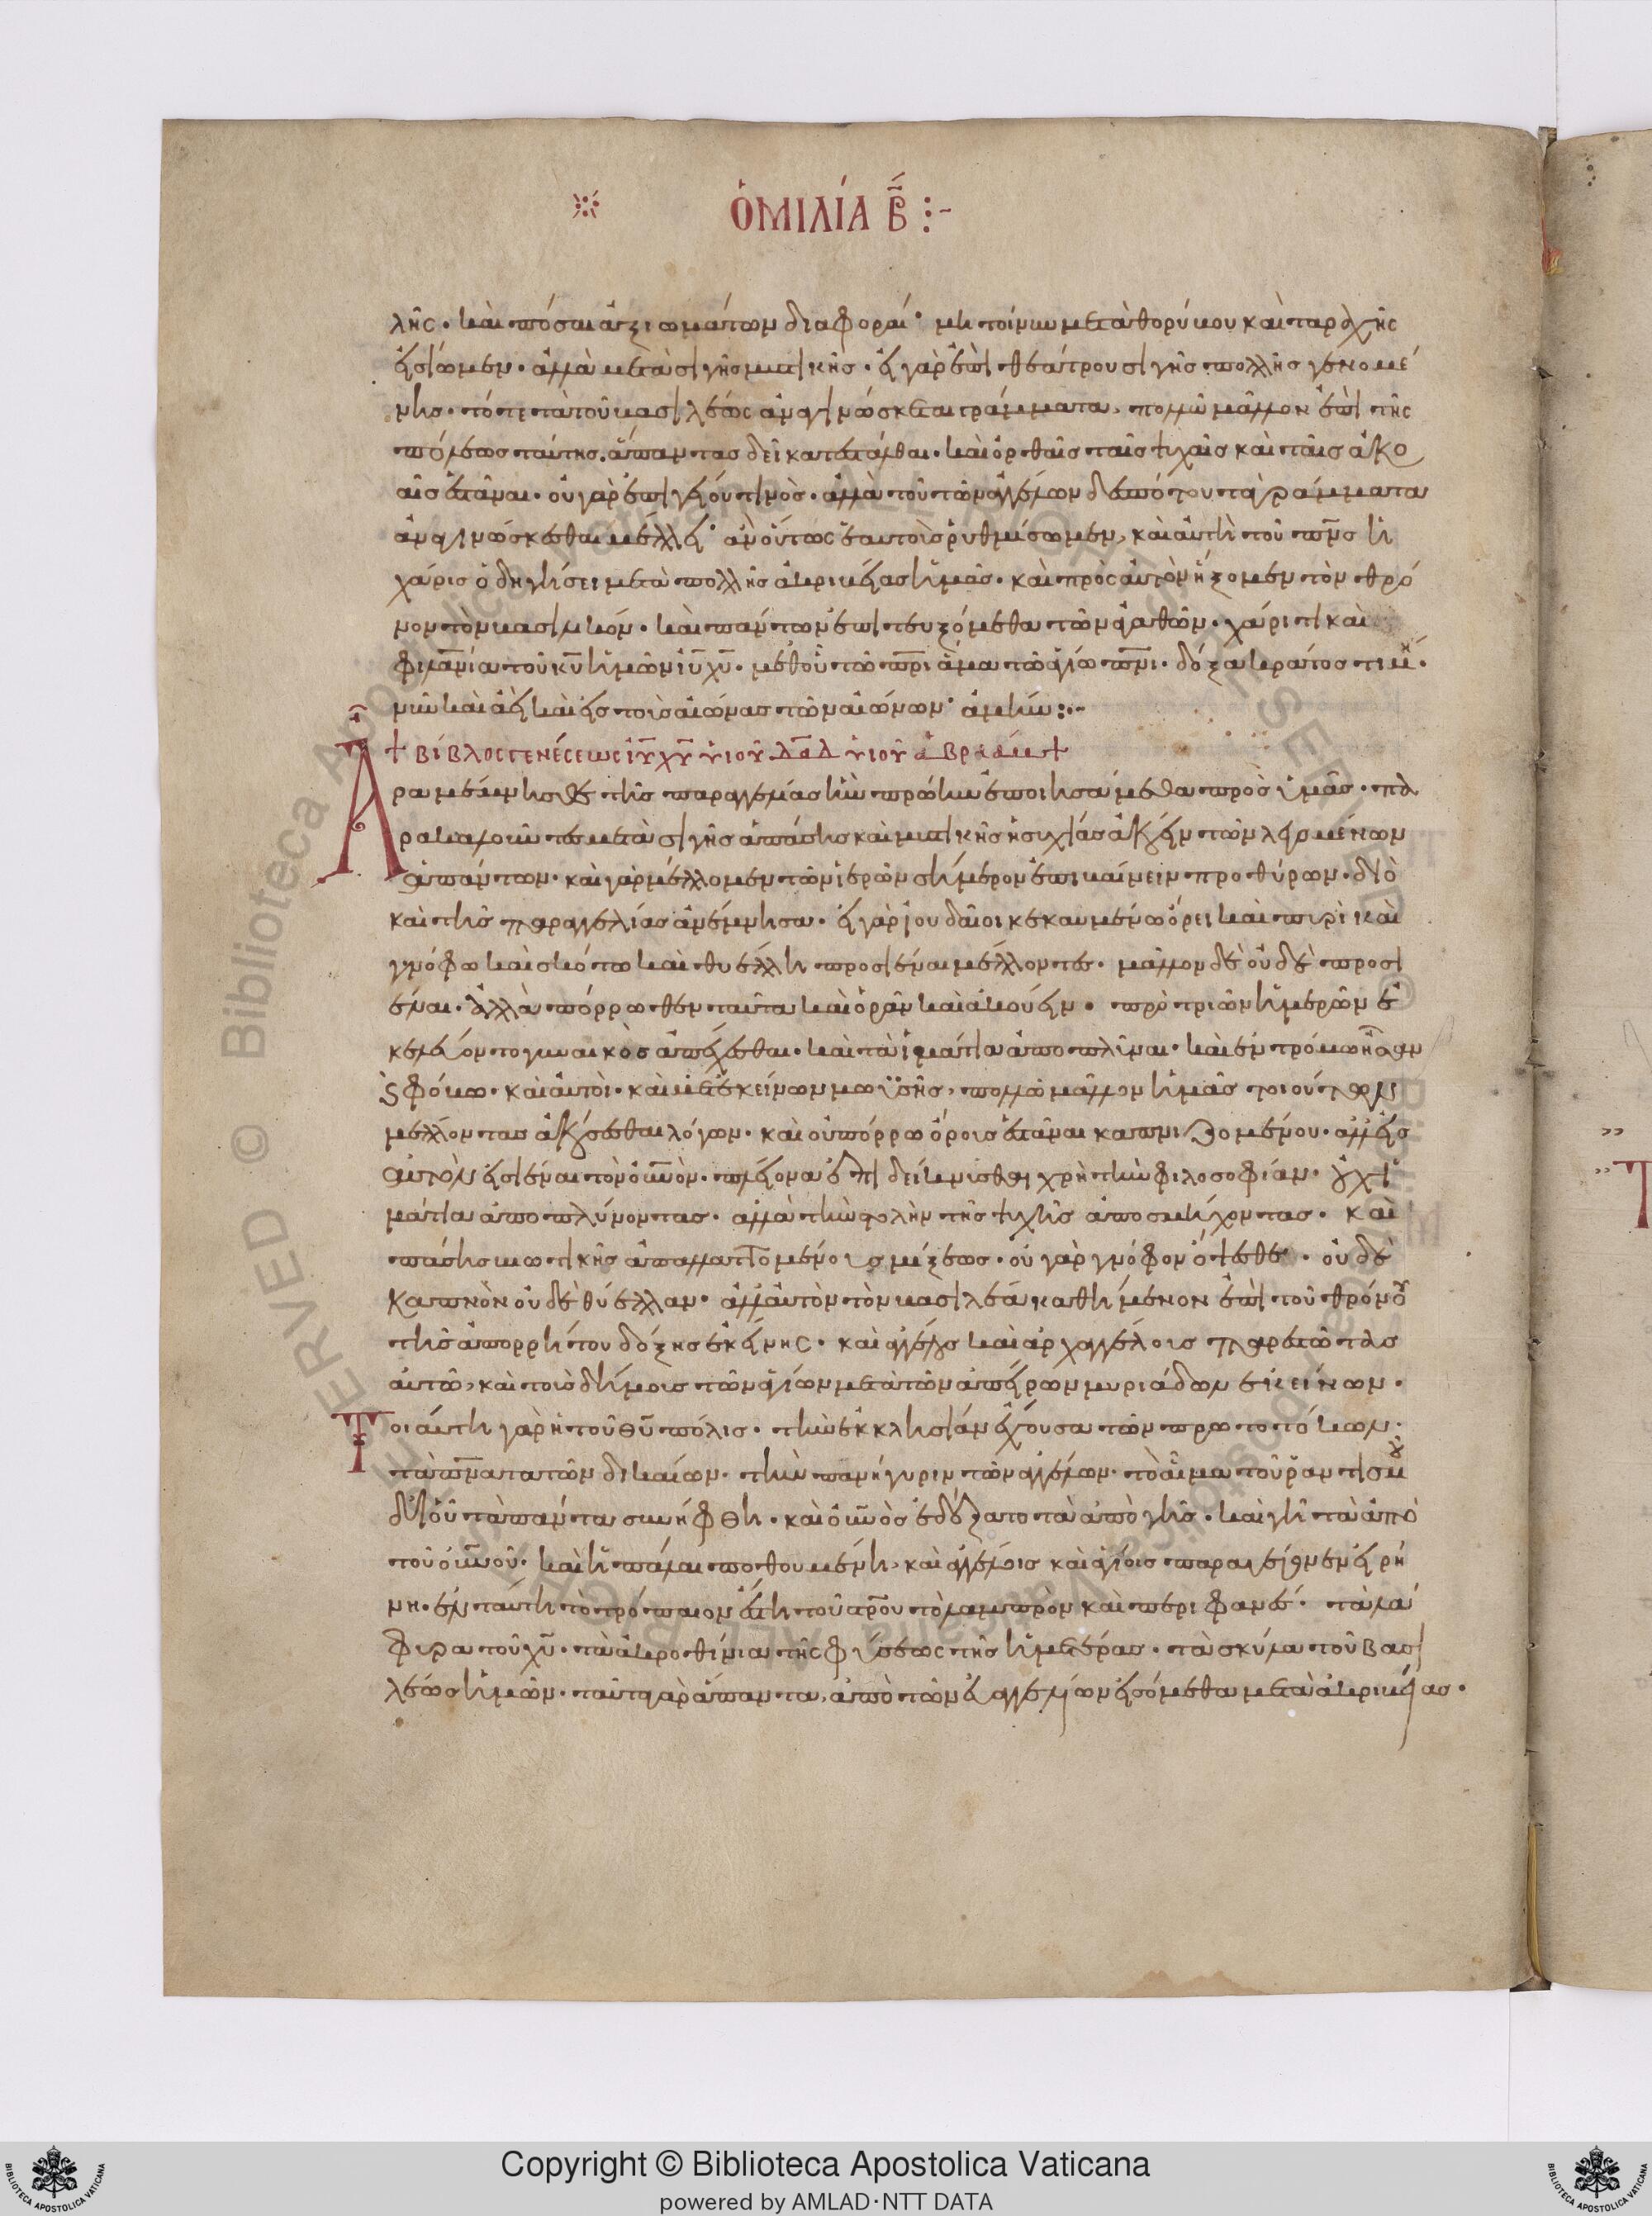 ὉΜΙΛΊΑ Β̄ :-
λῆς · καὶ πόσαι ἀξιωμάτων διαφοραί · μὴ τοίνυν μετὰ θορύβου καὶ ταραχῆς
εἰσίωμεν · ἀλλὰ μετὰ σιγῆς μυστικῆς · εἰ γὰρ ἐπὶ θεάτρου σιγῆς πολλῆς γενομέ
νης · τότε τὰ τοῦ βασιλέως ἀναγινώσκεται γράμματα, πολλῶ μᾶλλον ἐπὶ τῆς
πόλεως ταύτης ἅπαντας δεῖ κατεστάλθαι · καὶ ὀρθαῖς ταῖς ψυχαῖς καὶ ταῖς ἀκο
αῖς ἑστάναι · οὐ γὰρ ἐπιγείου τινὸς · ἀλλὰ τοῦ τῶν ἀγγέλων δεσπότου τὰ γράμματα
ἀναγινώσκεσθαι μέλλει · ἂν οὕτως ἑαυτοὺς ῥυθμίσωμεν, καὶ αὐτὴ τοῦ πν̄ς ἡ
χάρις ὁδηγήσει μετὰ πολλῆς ἀκριβείας ἡμᾶς · καὶ πρὸς αὐτὸν ἥξομεν τὸν θρό
νον τὸν βασιλικόν · καὶ πάντων ἐπιτευξόμεθα τῶν ἀγαθῶν · χάριτι καὶ
φιλαν̄ία τοῦ κῡ ἡμῶν ἰῡ χῡ · μεθ οὗ τῶ πρ̄ι ἅμα τῶ ἁγίω πν̄ι · δόξα κράτος τιμή ·
νῦν καὶ ἀεὶ καὶ εἰς τοὺς αἰῶνας τῶν αἰώνων · ἀμήν :·-
+ βίβλος γενέσεως ἰῡ χῡ υἱοῦ δᾱδ υἱοῦ ἀβραάμ +
Ἆρα μέμνησθε τῆς παραγγελίας ἣν πρώην ἐποιησάμεθα πρὸς ὑμᾶς · πα
ρακαλοῦντες μετὰ σιγῆς ἁπάσης καὶ μυστικῆς ἡσυχίας ἀκούειν τῶν λεγομένων
ἁπάντων · καὶ γὰρ μέλλομεν τῶν ἱερῶν σήμερον ἐπιβαίνειν προθύρων · διὸ
καὶ τῆς παραγγελίας ἀνέμνησα · εἰ γὰρ ἰουδαῖοι κεκαυμένω ὄρει καὶ πυρὶ καὶ
γνόφω καὶ σκότω καὶ θυέλλη προσιέναι μέλλοντες · μᾶλλον δὲ οὐδὲ προσι
έναι · ἀλλὰ πόρρωθεν ταῦτα καὶ ὁρᾶν καὶ ἀκούειν · πρὸ τριῶν ἡμερῶν ἐ
κελεύοντο γυναικὸς ἀπέχεσθαι · καὶ τὰ ἱμάτια ἀποπλῦναι · καὶ ἐν τρόμω ἦσαν
ϗ φόβω · καὶ αὐτοὶ · καὶ μετ ἐκείνων μωϋσῆς, πολλῶ μᾶλλον ἡμᾶς τοιούτων
μέλλοντας ἀκούσεσθαι λόγων · καὶ οὐ πόρρω ὄρους ἑστάναι καπνιζομένου · ἀλλ εἰς
αὐτὸν εἰσιέναι τὸν οὐν̄ὸν · πλείονα ἐπιδείκνυσθαι χρὴ τὴν φιλοσοφίαν · οὐχ ἱ
μάτια ἀποπλύνοντας · ἀλλὰ τὴν στολὴν τῆς ψυχῆς ἀποσμήχοντας · καὶ
πάσης βιωτικῆς ἀπαλλαττομένους μίξεως · οὐ γὰρ γνόφον ὄψεσθε · οὐδὲ
καπνὸν οὐδὲ θύελλαν · ἀλλ αὐτὸν τὸν βασιλέα καθήμενον ἐπὶ τοῦ θρόνου
τῆς ἀπορρήτου δόξης ἐκείνης · καὶ ἀγγέλους καὶ ἀρχαγγέλους παρεστῶτας
αὐτῶ, καὶ τοὺς δήμους τῶν ἁγίων μετὰ τῶν ἀπείρων μυριάδων ἐκείνων ·
Τοιαύτη γὰρ ἡ τοῦ θῡ πόλις · τὴν ἐκκλησίαν ἔχουσα τῶν πρωτοτόκων ·
τὰ πν̄ατα τῶν δικαίων · τὴν πανήγυριν τῶν ἀγγέλων · τὸ αἷμα τοῦ ῥαντισμοῦ
δι οὗ τὰ πάντα συνήφθη · καὶ ὁ οὐν̄ὸς ἐδέξατο τὰ ἀπὸ γῆς · καὶ γῆ τὰ ἀπὸ
τοῦ οὐν̄οῦ · καὶ ἡ πάλαι ποθουμένη, καὶ ἀγγέλοις καὶ ἁγίοις παραγέγονεν εἰρή
νη · ἐν ταύτη τὸ τρόπαιον ἕστηκε τοῦ στρ̄οῦ τὸ λαμπρὸν καὶ περιφανές · τὰ λά
φυρα τοῦ χῡ · τὰ ἀκροθίνια τῆς φύσεως τῆς ἡμετέρας · τὰ σκῦλα τοῦ βασι
λέως ἡμῶν · ταῦτα γὰρ ἅπαντα, ἀπὸ τῶν εὐαγγελίων εἰσόμεθα μετὰ ἀκριβείας ·
© Biblioteca Apostolica Vaticana ALL RIGHTS RESERVED
Copyright © Biblioteca Apostolica Vaticana
powered by AMLAD·NTT DATA
BIBLIOTECA APOSTOLICA VATICANA
BIBLIOTECA APOSTOLICA VATICANA